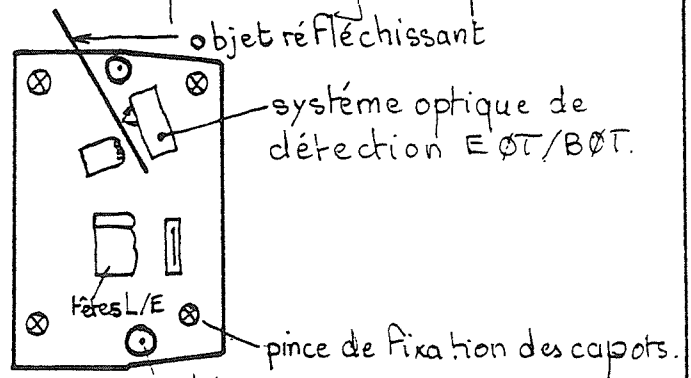 objet réfléchissant
systéme optique de
détection EØT/BØT.
têtes L/E
pince de fixation des capots.